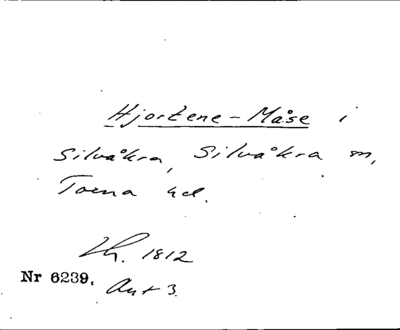 Hjortene-Måse i
Silvåkra, Silvåkra m,
Torna hd.
Lh. 1812
Nr 6239.
Akt 3.